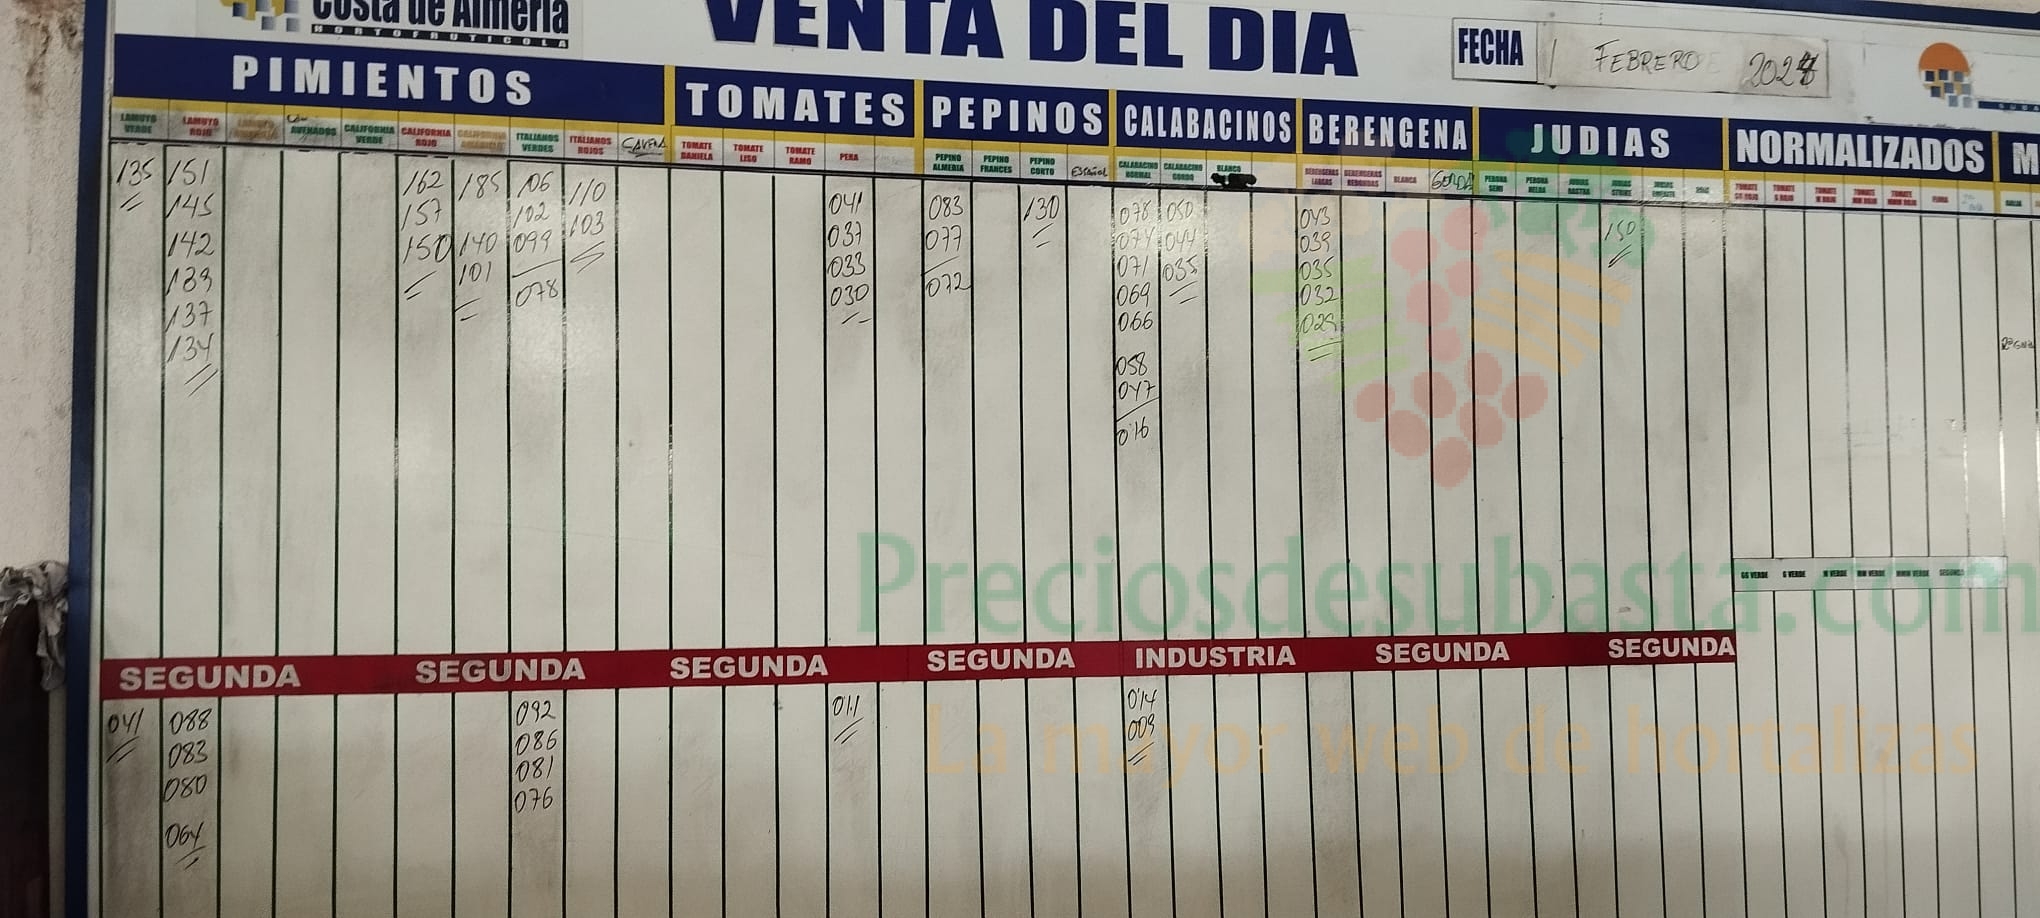 Costa de Almería
HORTOFRUTICOLA
VENTA DEL DIA
FECHA 1 FEBRERO 2024
PIMIENTOS TOMATES PEPINOS CALABACINOS BERENGENA JUDIAS NORMALIZADOS M
LAMUYO VERDE
LAMUYO ROJO
CALIFORNIA VERDE
CALIFORNIA ROJO
ITALIANOS VERDES
ITALIANOS ROJOS
TOMATE DANIELA
TOMATE LISO
TOMATE RAMO
PERA
PEPINO ALMERIA
PEPINO FRANCES
PEPINO CORTO
ESPAÑOL
CALABACINO NORMAL
CALABACINO GORDO
BLANCO
BERENGENAS LARGAS
BERENGENAS REDONDAS
BLANCA
GORDA
135
151
145
142
139
137
134
162
157
150
185
140
101
106
102
099
078
110
103
041
037
033
030
083
077
072
130
078
074
071
069
066
058
047
016
050
044
035
043
039
035
032
029
150
GG VERDE G VERDE M VERDE MM VERDE MMM VERDE SEGUNDA
SEGUNDA SEGUNDA SEGUNDA SEGUNDA INDUSTRIA SEGUNDA SEGUNDA
041
088
083
080
064
092
086
081
076
011
014
009
Preciosdesubasta.com
La mayor web de hortalizas